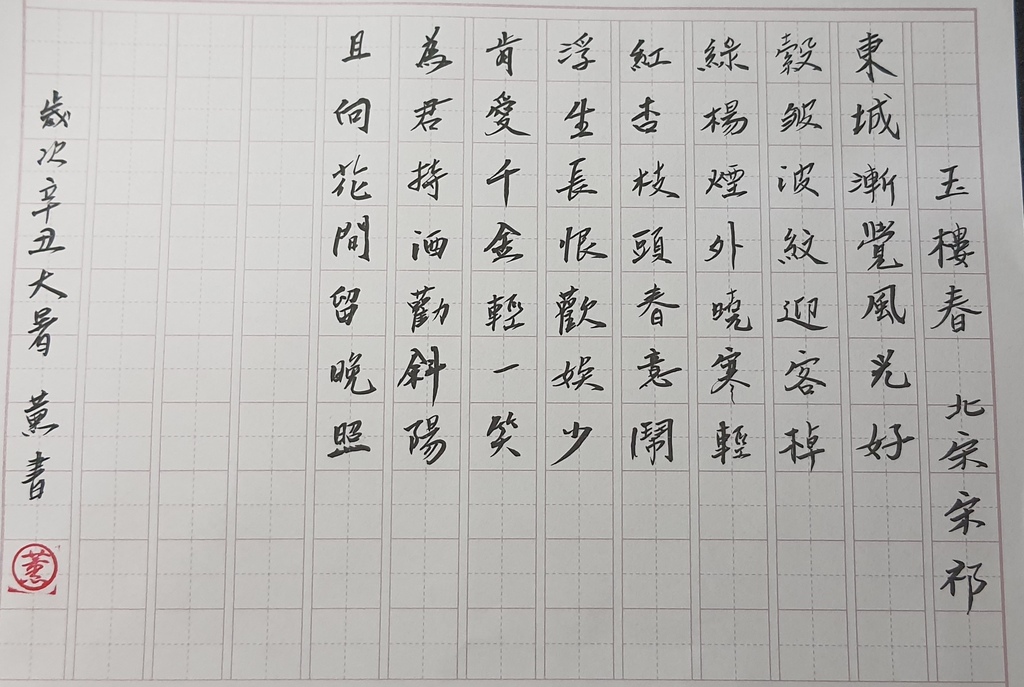 玉樓春 北宋 宋祁
東城漸覺風光好
縠皺波紋迎客棹
綠楊煙外曉寒輕
紅杏枝頭春意鬧
浮生長恨歡娛少
肯愛千金輕一笑
為君持酒勸斜陽
且向花間留晚照
歲次辛丑大暑 薰書
薰